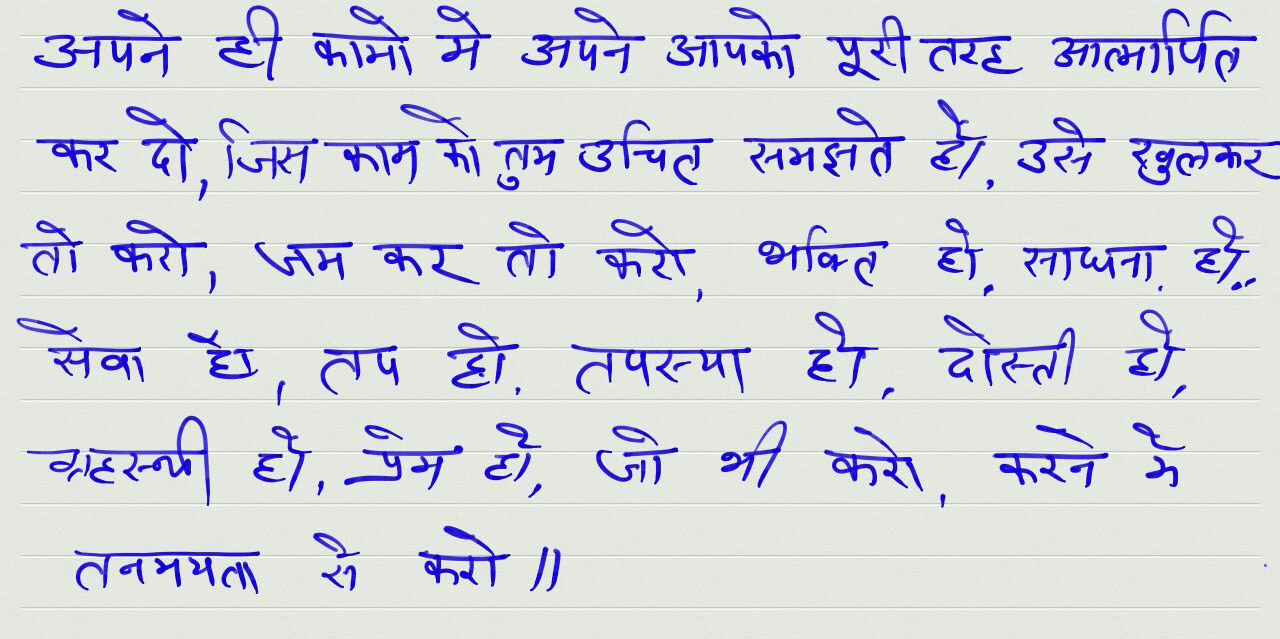 अपने ही कामो मे अपने आपको पूरी तरह आत्मार्पित
कर दो, जिस काम को तुम उचित समझते हो, उसे खुलकर
तो करो, जम कर तो करो, भक्ति हो, साधना, हो,
सेवा हो, तप हो, तपस्या हो, दोस्ती हो,
ग्रहस्थी हो, प्रेम हो, जो भी करो, करने मे
तनमयता से करो ॥